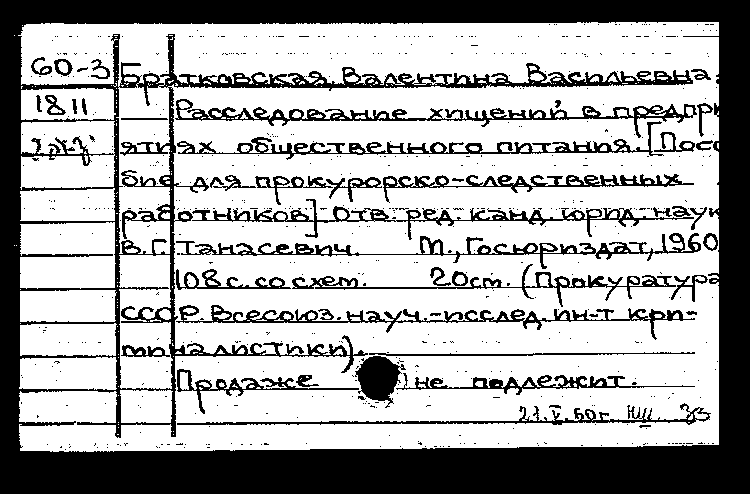 60-3
1811
Братковская, Валентина Васильевна.
Расследование хищений в предпри
ятиях общественного питания. [Посо
бие для прокурорско-следственных
работников] Отв. ред. канд. юрид. наук
В.Г. Танасевич. М., Госюриздат, 1960
108 с. со схем. 20 см. (Прокуратура
СССР. Всесоюз. науч.-исслед. ин-т кри-
миналистики).
Продаже не подлежит.
21.V.60г.